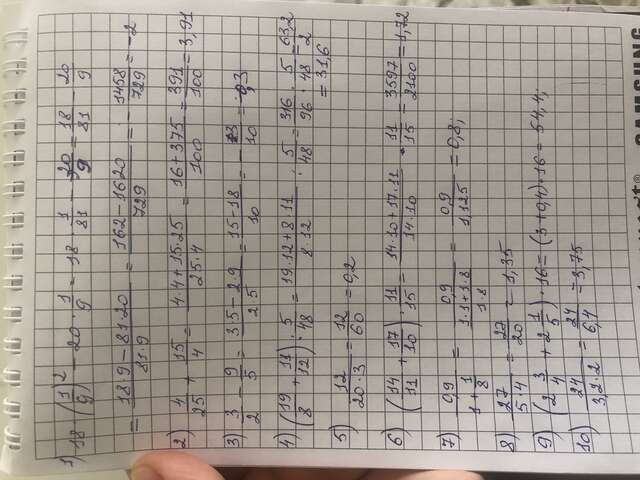 1) 18·(1/9)² − 20·1/9 = 18·1/81 − 20/9 = 18/81 − 20/9
= 18·9 − 81·20/81·9 = 162 − 1620/729 = − 1458/729 = −2
2) 4/25 + 15/4 = 4·4 + 15·25/25·4 = 16 + 375/100 = 391/100 = 3,91
3) 3/2 − 9/5 = 3·5 − 2·9/2·5 = 15 − 18/10 = − 3/10 = −0,3
4) (19/8 + 11/12) : 5/48 = 19·12 + 8·11/8·12 : 5/48 = 316/96 : 5/48 = 63,2/2
= 31,6
5) 12/20·3 = 12/60 = 0,2
6) (14/11 + 17/10) · 11/15 = 14·10 + 17·11/14·10 · 11/15 = 3597/2100 = 1,72
7) 0,9/1 + 1/8 = 0,9/1·1 + 1·8/1·8 = 0,9/1,125 = 0,8;
8) 27/5·4 = 27/20 = 1,35
9) (2 3/4 + 2 1/5) · 16 = (3 + 0,4) · 16 = 54,4;
10) 24/3,2·2 = 24/6,4 = 3,75
SAMSUNG